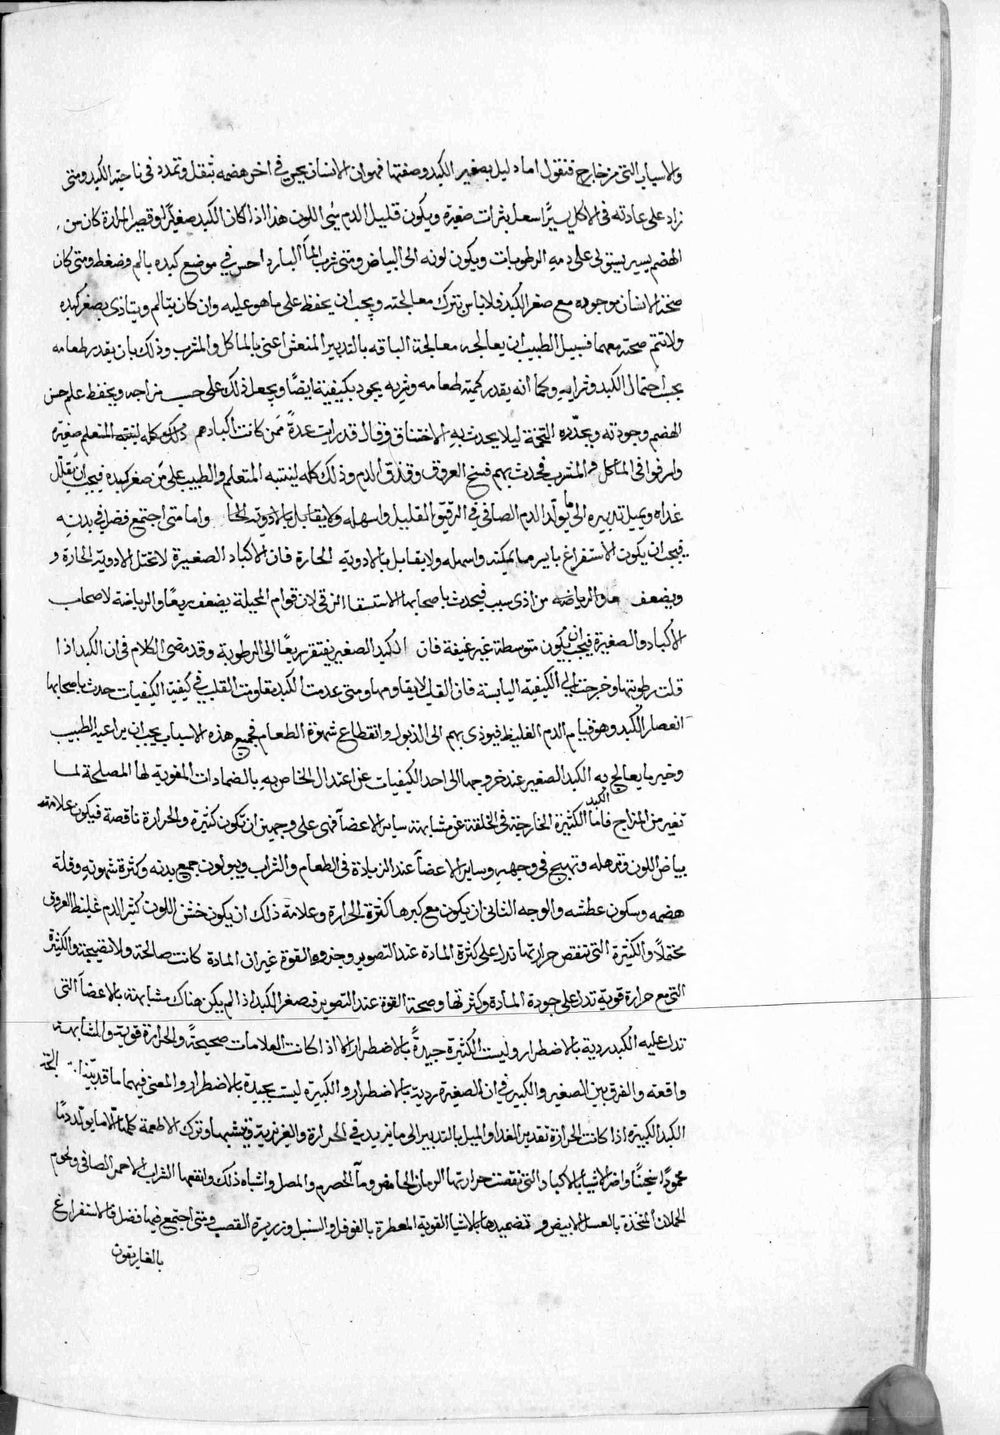 والاسباب التي من خارج فنقول اما دليل صغير الكبد وصفتها فهو ان الانسان يحس في اخر هضمه بثقل وتمدد في ناحية الكبد ومتى
زاد على عادته في الاكل يسيرًا سعل بثرات صغيرة ويكون قليل الدم اللون هذا اذا كان الكبد صغيرًا وقصير المرارة كان
الهضم يسير يستولى على دمه الرطوبات ويكون لونه الى البياض ومتى شرب المآ البارد احس في موضع كبده بالم وضغط ومتى كان
صحة الانسان موجوده مع صغر الكبد فلا باس بترك معالجته ويجب ان يحفظ على ما هو عليه وان كان يتالم ويتاذى بصغر كبده
ولا تتم صحته معها فسبيل الطبيب ان يعالجه معالجة بالتدبير المنعش اعني بالماكل والمشرب وذلك بان يقدر طعامه
بحسب احتمال الكبد وشرابه وكما انه يقدر كمية طعامه وشربه يجود بكيفيته ايضًا ويجعل ذلك على حسب مزاجه ويحفظ عليه حسن
الهضم وجودته ويحذره التخمة ليلا يحدث به الاختناق وقال قد رايت عدةً ممن كانت اكبادهم ذلك كله لينتبه المتعلم صغيرة
واسرفوا في الماكل والمشرب فحدث بهم فسخ العروق وقذف الدم وذلك كله لينتبه المتعلم والطبيب على من صغر كبده فيجب ان يقلل
غذاه ويميل تدبيره الى ما يولد الدم الصافي في الرقيق القليل واسهله ولا يقابل بالادوية الحا واما متى اجتمع فضل في بدنه
فيجب ان يكون الاستفراغ بايسر ما يمكنه واسهله ولا يقابل بالادوية الحارة فان الاكباد الصغيرة لا تحتمل الادوية الحارة و
ويضعف والرياضه من اذى سبب فيحدث باصحابها الاستسقا الزقي لان قوام المحيلة يضعف سريعًا والرياضة لاصحاب
الاكباد الصغيرة فيجب ان يكون متوسطة غير عنيفة فان الكبد الصغير يفتقر سريعًا الى الرطوبة وقد مضى الكلام في ان الكبد اذا
قلت رطوبتها وخرجت الى الكيفية اليابسة فان القلب لا يقاومها ومتى عدمت الكبد مقاومة القلب في كيفية الكيفيات حدث باصحابها
انعصار الكبد وهو قيام الدم الغليظ فيوذى بهم الى الذبول وانقطاع شهوة الطعام فجميع هذه الاسباب يجب ان يراعيه الطبيب
وخير ما يعالج به الكبد الصغير عند خروجها الى احد الكيفيات عن اعتدال الخاص به بالضمادات المقوية لها المصلحة لما
تغير من المزاج فاما الكبد الكثيرة الخارجة في الخلقة عن مشابهة ساير الاعضآ فهي على وجهين ان تكون كثيرة والحرارة ناقصة فيكون علامته
بياض اللون وترهله وتهبج في وجهه وساير الاعضآ عند الزيادة في الطعام والشراب ويبولون جميع بدنه وكثرة شهوته وقلة
هضمه وسكون عطشه والوجه الثاني ان يكون مع كبرها كثرة الحرارة وعلامة ذلك ان يكون خشن اللون كثير الدم غليظ العروق
محتملًا والكثيرة التي تنقص حرارتها تدل على كثرة المادة عند التصوير القوة غير ان المادة كانت صالحة ولا نضيجة والكثيرة
التي مع حرارة قوية تدل على جودة المادة وكثرتها وصحة القوة عند التصوير فبصغر الكبد اذا لم يكن هناك مشابهة بالاعضآ التي
تدل عليه الكبد ردية بالاضطرار وليست الكثيرة جيدةً بالاضطرار الا اذا كانت العلامات صحيحةً والحرارة قوية والمشابهة
واقعته والفرق بين الصغير والكبير في ان الصغيرة ردية بالاضطرار والكبيرة ليست بجيدة بالاضطرار والمعنى فيهما ما قد بيّنا
الكبد الكبيرة اذا كانت الحرارة تقدير الغذا والميل بالتدبير الى ما يزيد في الحرارة والغريزية وترك الاطعمة كلها الا ما يولد دمًا
محمودًا واضر الاشيآ بالاكباد التي نقصت حرارتها الرمان الحامض ومآ الحصرم والمصل واشباه ذلك وانفعها الشراب الاحمر الصافي ولحوم
الحملان المتخذة بالعسل الابيض و تضميدها بالاشيا القوية المعطرة بالفوفل والسنبل وذريرة القصب ومتى اجتمع فيها فضل فالاستفراغ
بالغاريقون